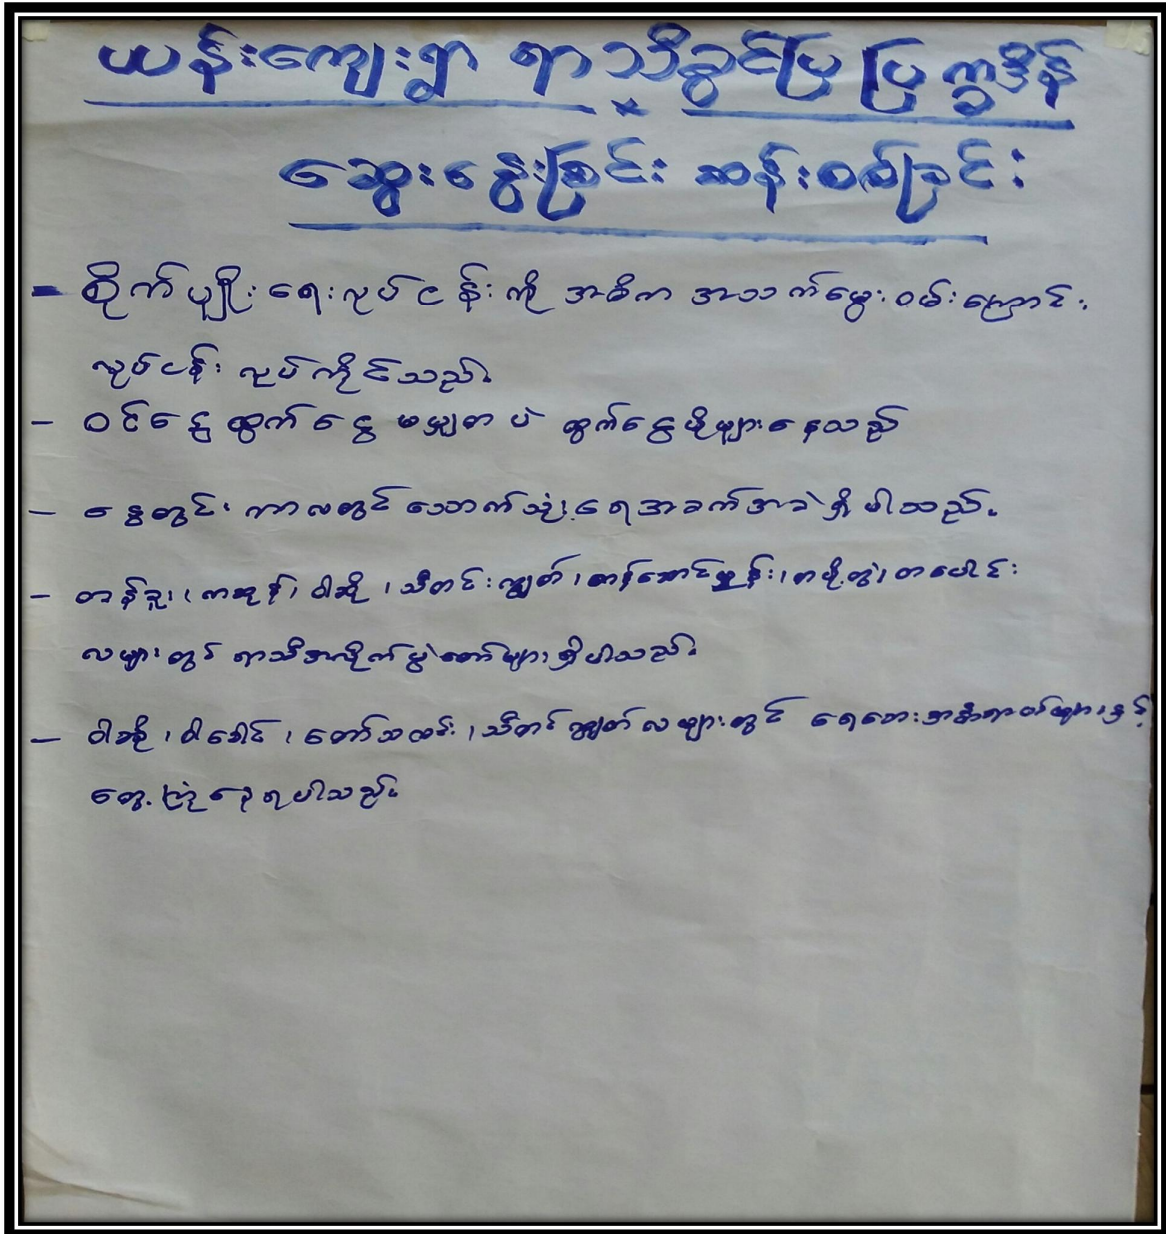 ယန်းကျေးရွာ ရာသီခွင်ပြ ပြက္ခဒိန်
ဆွေးနွေးခြင်း ဆန်းစစ်ခြင်း
- စိုက်ပျိုးရေးလုပ်ငန်းကို အဓိက အသက်မွေးဝမ်းကြောင်း
လုပ်ငန်း လုပ်ကိုင်သည်။
- ဝင်ငွေ ထွက်ငွေ မမျှတပဲ ထွက်ငွေပိုများနေသည်
- နွေတွင်းကာလတွင် သောက်သုံးရေအခက်အခဲရှိပါသည်။
- တန်ခူး၊ ကဆုန်၊ ဝါဆို၊ သီတင်းကျွတ်၊ တန်ဆောင်မုန်း၊ တပို့တွဲ၊ တပေါင်း
လများတွင် ရာသီအလိုက်ပွဲတော်များရှိပါသည်။
- ဝါဆို၊ ဝါခေါင်၊ တော်သလင်း၊ သီတင်းကျွတ်လများတွင် ရေဘေးအန္တရာယ်များနှင့်
တွေ့ကြုံနေရပါသည်။